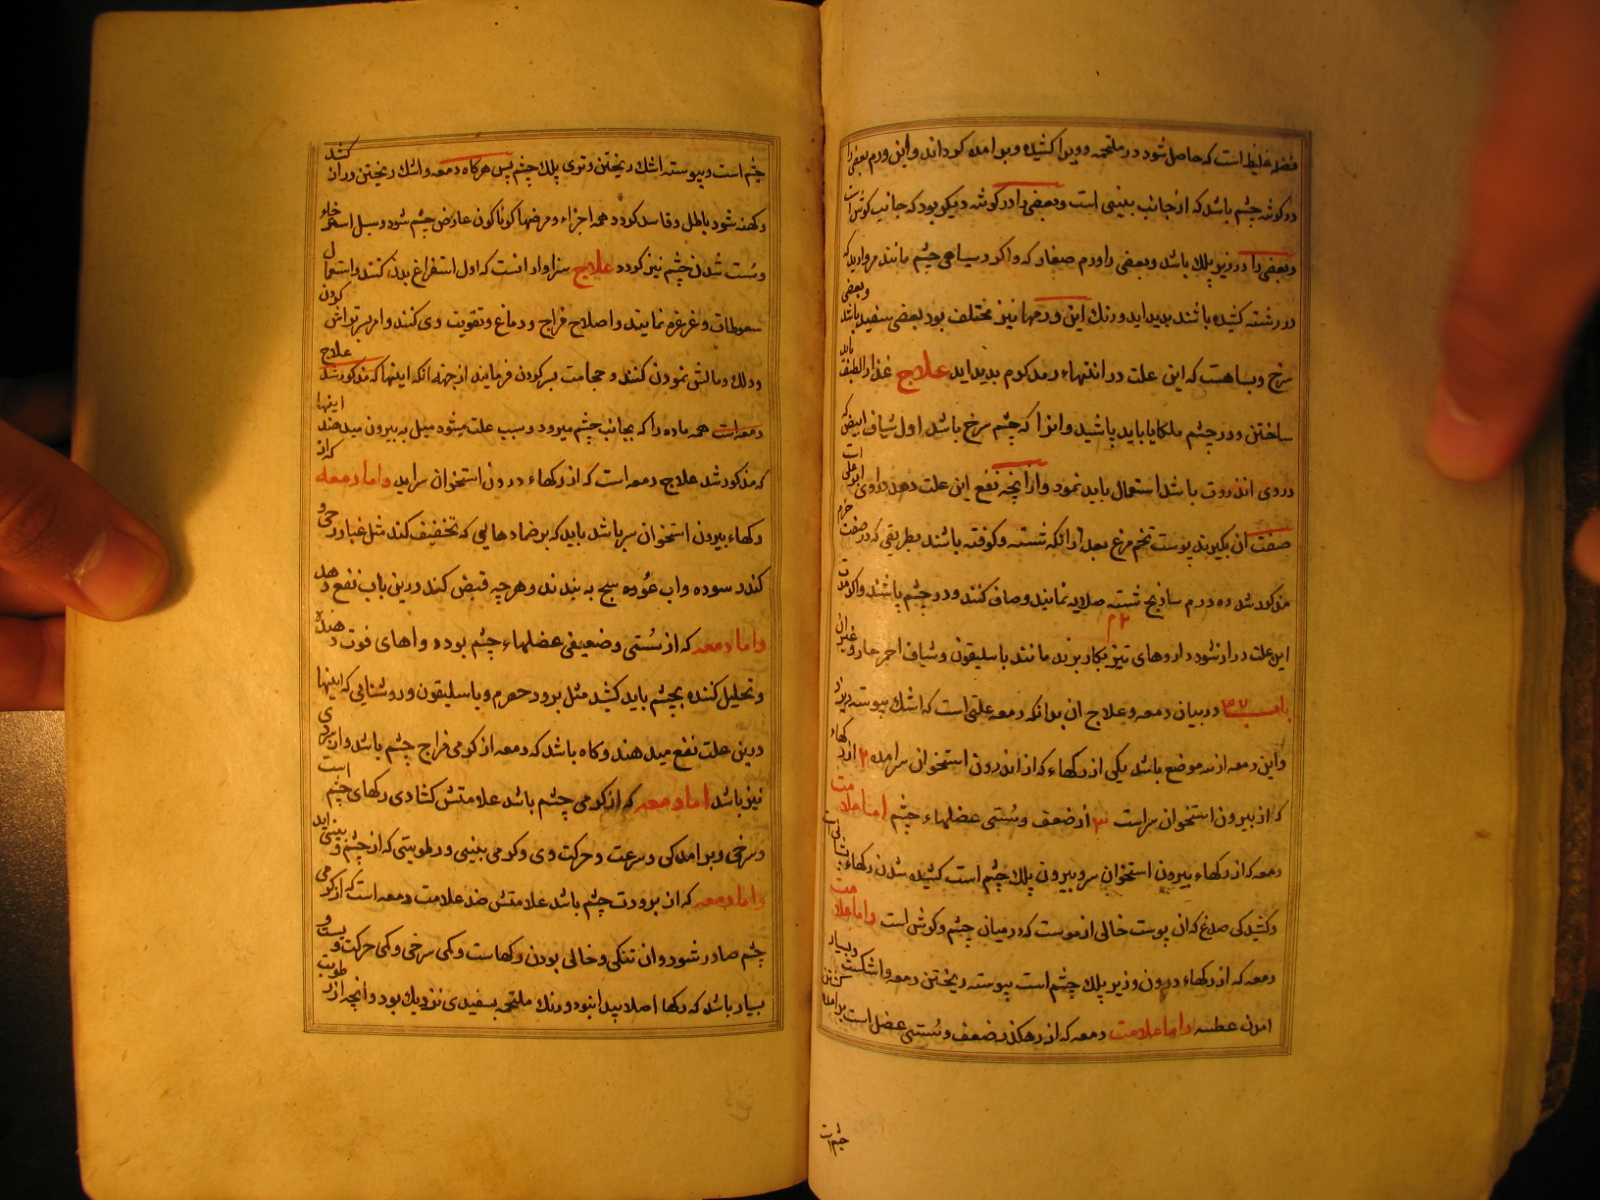 فضله غلیظ است که حاصل شود در ملتحمه و ویرا کشیده و برامده کرداند و این ورم بعضی را
در کوشه چشم باشد که از جانب بینی است و بعضی را در کوشه دیکر بود که جانب کوش است
و بعضی را در زیر پلك باشد و بعضی را ورم صغار که واکرد سیاهی چشم مانند مروارید که
در رشته کشیده باشند بدید اید و رنك این ورمها نیز مختلف بود بعضی سفید باشد و بعضی
سرخ و بساهست که این علت در انتهاء رمد کرم بدید اید علاج غذا را لطیف باید
ساختن و در چشم ملکایا باید پاشید و انرا که چشم سرخ باشد اول شیاف ابیض که
در وی انذروت باشد استعمال باید نمود و از انچه نفع این علت دهد داروی ابو علی است
صفت ان بکیرند پوست تخم مرغ بعد از انکه شسته و کوفته باشند بطریقی که در صفت خرم
مذکور شد ده درم سادنج شسته صلایه نمایند و صاف کنند و در چشم پاشند و اکر مدت
۲م
این علت دراز شود داروهای تیز بکار برند مانند باسلیقون و شیاف احمر حار و غیر ان
باب ۳۷ در بیان دمعه و علاج ان بدانکه دمعه علتی است که اشك پیوسته ریزد
و این دمعه از سه موضع باشد یکی از رکهاء که از اندرون استخوان سرامده ۲ از رکهاء
که از بیرون استخوان سراست ۳ از ضعف و سستی عضلهاء چشم اما علامت
دمعه که از رکهاء بیرون استخوان سر و بیرون پلك چشم است کشیده شدن رکهاء پیشانی است
و کشید کی صدغ که ان پوست خالی از موست که در میان چشم و کوش است و اما علامت
دمعه که از رکهاء درون و زیر پلك چشم است پیوسته ریختن دمعه و اشکست و بسیار
امدن عطسه و اما علامت دمعه که از رهکذر ضعف و سستی عضل است برامده کشتن
چشم است
چشم است و پیوسته اشك ریختن و توی پلك چشم پس هرکاه دمعه و اشك ریختن دراز کشد
و کهنه شود باطل و فاسد کردد همه اجزاء و مرضها کوناکون عارض چشم شود و سبل استرخاء
و سست شدن چشم نیز کردد علاج سزاوار انست که اول استفراغ بدن کنند و استعمال
سعوطات و غرغره نمایند و اصلاح مزاج و دماغ و تقویت وی کنند و امر بسر تراش کردن
و دلك و مالش نمودن کنند و حجامت بسر کردن فرمایند از جهه انکه اینها که مذکور شد علاج
دمعه است همه ماده را که بجانب چشم میرود و سبب علت میشود میل به بیرون میدهند اینها
که مذکور شد علاج دمعه است که از رکهاء درون استخوان سر اید و اما دمعه که از
رکهاء بیرون استخوان سر باشد باید که بر ضمادهایی که تخفیف کند مثل غبار رحی و
کندر سوده و اب غوره سج به بندند و هرچه قبض کند درین باب نفع دهد
و اما دمعه که از سستی و ضعیفی عضلهاء چشم بود دواهای قوت دهنده
و تحلیل کننده بچشم باید کشید مثل برود حصرم و باسلیقون و روشنایی که اینها
درین علت نفع میدهند و کاه باشد که دمعه از کرمی مزاج چشم باشد و از سردی
نیز باشد اما دمعه که از کرمی چشم باشد علامتش کشادی رکهای چشم است
و سرخی و برامدکی و سرعت و حرکت وی و کرمی بینی و رطوبتی که از چشم و بینی اید
و اما دمعه که از برودت چشم باشد علامتش ضد علامت دمعه است که از کرمی
چشم صادر شود و ان تنکی و خالی بودن رکهاست و کمی سرخی و کمی حرکت و پستی و
بسیار باشد که رکها اصلا پیدا نبود و رنك ملتحمه بسفیدی نزدیك بود و انچه از رطوبت